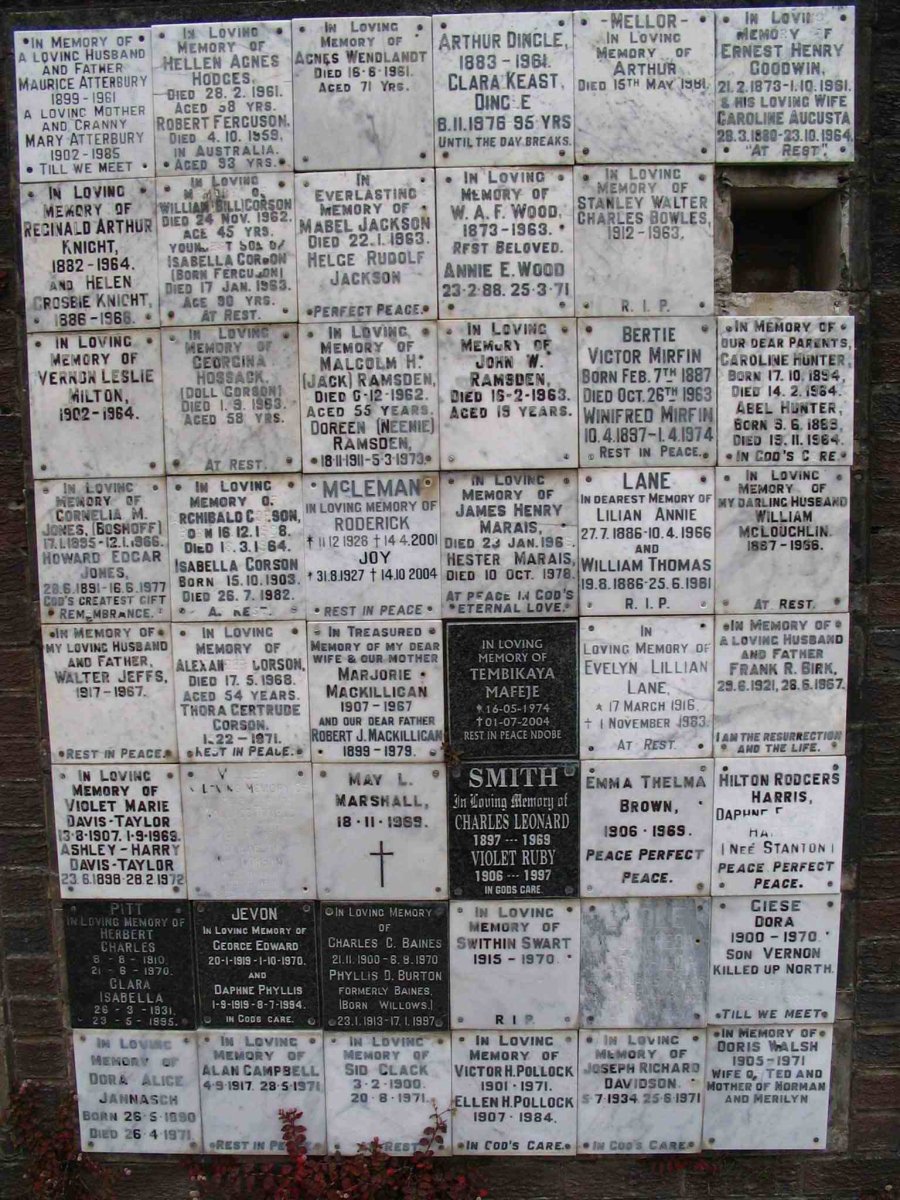 IN MEMORY OF
A LOVING HUSBAND
AND FATHER
MAURICE ATTERBURY
1899-1961
A LOVING MOTHER
AND GRANNY
MARY ATTERBURY
1902-1985
TILL WE MEET
IN LOVING
MEMORY OF
HELLEN AGNES
HODGES,
DIED 28.2.1961.
AGED 58 YRS.
ROBERT FERGUSON.
DIED 4.10.1959.
IN AUSTRALIA.
AGED 93 YRS.
IN LOVING
MEMORY OF
AGNES WENDLANDT
DIED 16-6-1961.
AGED 71 YRS.
ARTHUR DINGLE,
1883-1961.
CLARA KEAST,
DINGLE
8.11.1976 95 YRS
UNTIL THE DAY BREAKS.
-MELLOR-
IN LOVING
MEMORY OF
ARTHUR
DIED 15TH MAY 1961.
IN LOVING
MEMORY OF
ERNEST HENRY
GOODWIN,
21.2.1873-1.10.1961.
& HIS LOVING WIFE
CAROLINE AUGUSTA
28.3.1880-23.10.1964.
"AT REST".
IN LOVING
MEMORY OF
REGINALD ARTHUR
KNIGHT,
1882-1964.
AND HELEN
CROSBIE KNIGHT,
1886-1966.
IN LOVING
WILLIAM GILLIGORSON
DIED 24 NOV. 1962.
AGE 45 YRS.
SON OF
ISABELLA CORSON
(BORN FERGUSON)
DIED 17 JAN. 1963.
AGE 90 YRS.
AT REST.
IN
EVERLASTING
MEMORY OF
MABEL JACKSON
DIED 22.1.1963.
HELGE RUDOLF
JACKSON
PERFECT PEACE.
IN LOVING
MEMORY OF
W. A. F. WOOD,
1873-1963.
REST BELOVED.
ANNIE E. WOOD
23-2-88. 25-3-71
IN LOVING
MEMORY OF
STANLEY WALTER
CHARLES BOWLES,
1912-1963.
R. I. P.
IN LOVING
MEMORY OF
VERNON LESLIE
MILTON,
1902-1964.
IN LOVING
MEMORY OF
GEORGINA
HOSSACK,
(DOLL CORSON)
DIED 1.9.1963.
AGED 58 YRS.
AT REST.
IN LOVING
MEMORY OF
MALCOLM H.
(JACK) RAMSDEN,
DIED 6-12-1962.
AGED 55 YEARS.
DOREEN (NEENIE)
RAMSDEN,
18-11-1911-5-3-1973.
IN LOVING
MEMORY OF
JOHN W.
RAMSDEN,
DIED 16-2-1963.
AGED 19 YEARS.
BERTIE
VICTOR MIRFIN
BORN FEB. 7TH 1887
DIED OCT. 26TH 1963
WINIFRED MIRFIN
10.4.1897-1.4.1974
REST IN PEACE.
IN MEMORY OF
OUR DEAR PARENTS,
CAROLINE HUNTER,
BORN 17.10.1894,
DIED 14.2.1964.
ABEL HUNTER,
BORN 9.6.1889,
DIED 19.11.1964.
IN GOD'S CARE.
IN LOVING
MEMORY OF
CORNELIA M.
JONES, (BOSHOFF)
HOWARD EDGAR
JONES,
28.6.1891-16.6.1977
GOD'S GREATEST GIFT
REMEMBRANCE.
IN LOVING
MEMORY OF
RCHIBALD
ISABELLA CORSON
BORN 15.10.1903.
DIED 26.7.1982.
MCLEMAN
IN LOVING MEMORY OF
RODERICK
* 11.12.1926 † 14.4.2001
JOY
* 31.8.1927 † 14.10.2004
REST IN PEACE
IN LOVING
MEMORY OF
JAMES HENRY
MARAIS,
DIED 23 JAN. 196
HESTER MARAIS,
DIED 10 OCT. 1978.
AT PEACE IN GOD'S
ETERNAL LOVE.
LANE
IN DEAREST MEMORY OF
LILIAN ANNIE
27.7.1886-10.4.1966
AND
WILLIAM THOMAS
19.8.1886-25.6.1981
R. I. P.
IN LOVING
MEMORY OF
MY DARLING HUSBAND
WILLIAM
MCLOUGHLIN.
1887-1966.
AT REST.
IN MEMORY OF
MY LOVING HUSBAND
AND FATHER,
WALTER JEFFS,
1917-1967.
REST IN PEACE.
IN LOVING
MEMORY OF
DIED 17.5.1968.
AGED 54 YEARS.
THORA GERTRUDE
CORSON.
REST IN PEACE.
IN TREASURED
MEMORY OF MY DEAR
WIFE & OUR MOTHER
MARJORIE
MACKILLICAN
1907-1967
AND OUR DEAR FATHER
ROBERT J. MACKILLICAN
1899-1979.
IN LOVING
MEMORY OF
TEMBIKAYA
MAFEJE
*16-05-1974
†01-07-2004
REST IN PEACE NDOBE
IN
LOVING MEMORY OF
EVELYN LILLIAN
LANE,
* 17 MARCH 1916.
† 1 NOVEMBER 1983.
AT REST.
IN MEMORY OF
A LOVING HUSBAND
AND FATHER
FRANK R. BIRK,
29.6.1921, 28.6.1967.
I AM THE RESURRECTION
AND THE LIFE.
IN LOVING
MEMORY OF
VIOLET MARIE
DAVIS-TAYLOR
13-8-1907. 1-9-1969.
ASHLEY-HARRY
DAVIS-TAYLOR
23.6.1898-28.2.1972
MAY L.
MARSHALL,
18-11-1969.
SMITH
In Loving Memory of
CHARLES LEONARD
1897 --- 1969
VIOLET RUBY
1906 --- 1997
IN GODS CARE.
EMMA THELMA
BROWN,
1906-1969.
PEACE PERFECT
PEACE.
HILTON RODGERS
HARRIS,
DAPHNE
(NEÉ STANTON)
PEACE PERFECT
PEACE.
PITT
IN LOVING MEMORY OF
HERBERT
CHARLES
8-8-1910.
21-6-1970.
CLARA
ISABELLA
26-3-1931.
29-5-1995.
JEVON
IN LOVING MEMORY OF
GEORGE EDWARD
20-1-1919-1-10-1970.
AND
DAPHNE PHYLLIS
1-9-1919-8-7-1994.
IN GODS CARE.
IN LOVING MEMORY
OF
CHARLES C. BAINES
21.11.1900-6.9.1970
PHYLLIS D. BURTON
FORMERLY BAINES,
(BORN WILLOWS.)
23.1.1913-17.1.1997
IN LOVING
MEMORY OF
SWITHIN SWART
1915-1970.
R I P.
GIESE
DORA
1900-1970.
SON VERNON
KILLED UP NORTH.
TILL WE MEET
IN LOVING
MEMORY OF
DORA ALICE
JANNASCH
BORN 26-5-1890
DIED 26-4-1971
IN LOVING
MEMORY OF
ALAN CAMPBELL
4-9-1917. 28-5-1971
REST IN PEACE
IN LOVING
MEMORY OF
SID CLACK
3-2-1900.
20-8-1971.
REST.
IN LOVING
MEMORY OF
VICTOR H. POLLOCK
1901-1971.
ELLEN H. POLLOCK
1907-1984.
IN GOD'S CARE.
IN LOVING
MEMORY OF
JOSEPH RICHARD
DAVIDSON.
5-7-1934. 25-6-1971
IN GOD'S CARE.
IN MEMORY OF
DORIS WALSH
1905-1971
WIFE OF TED AND
MOTHER OF NORMAN
AND MERILYN